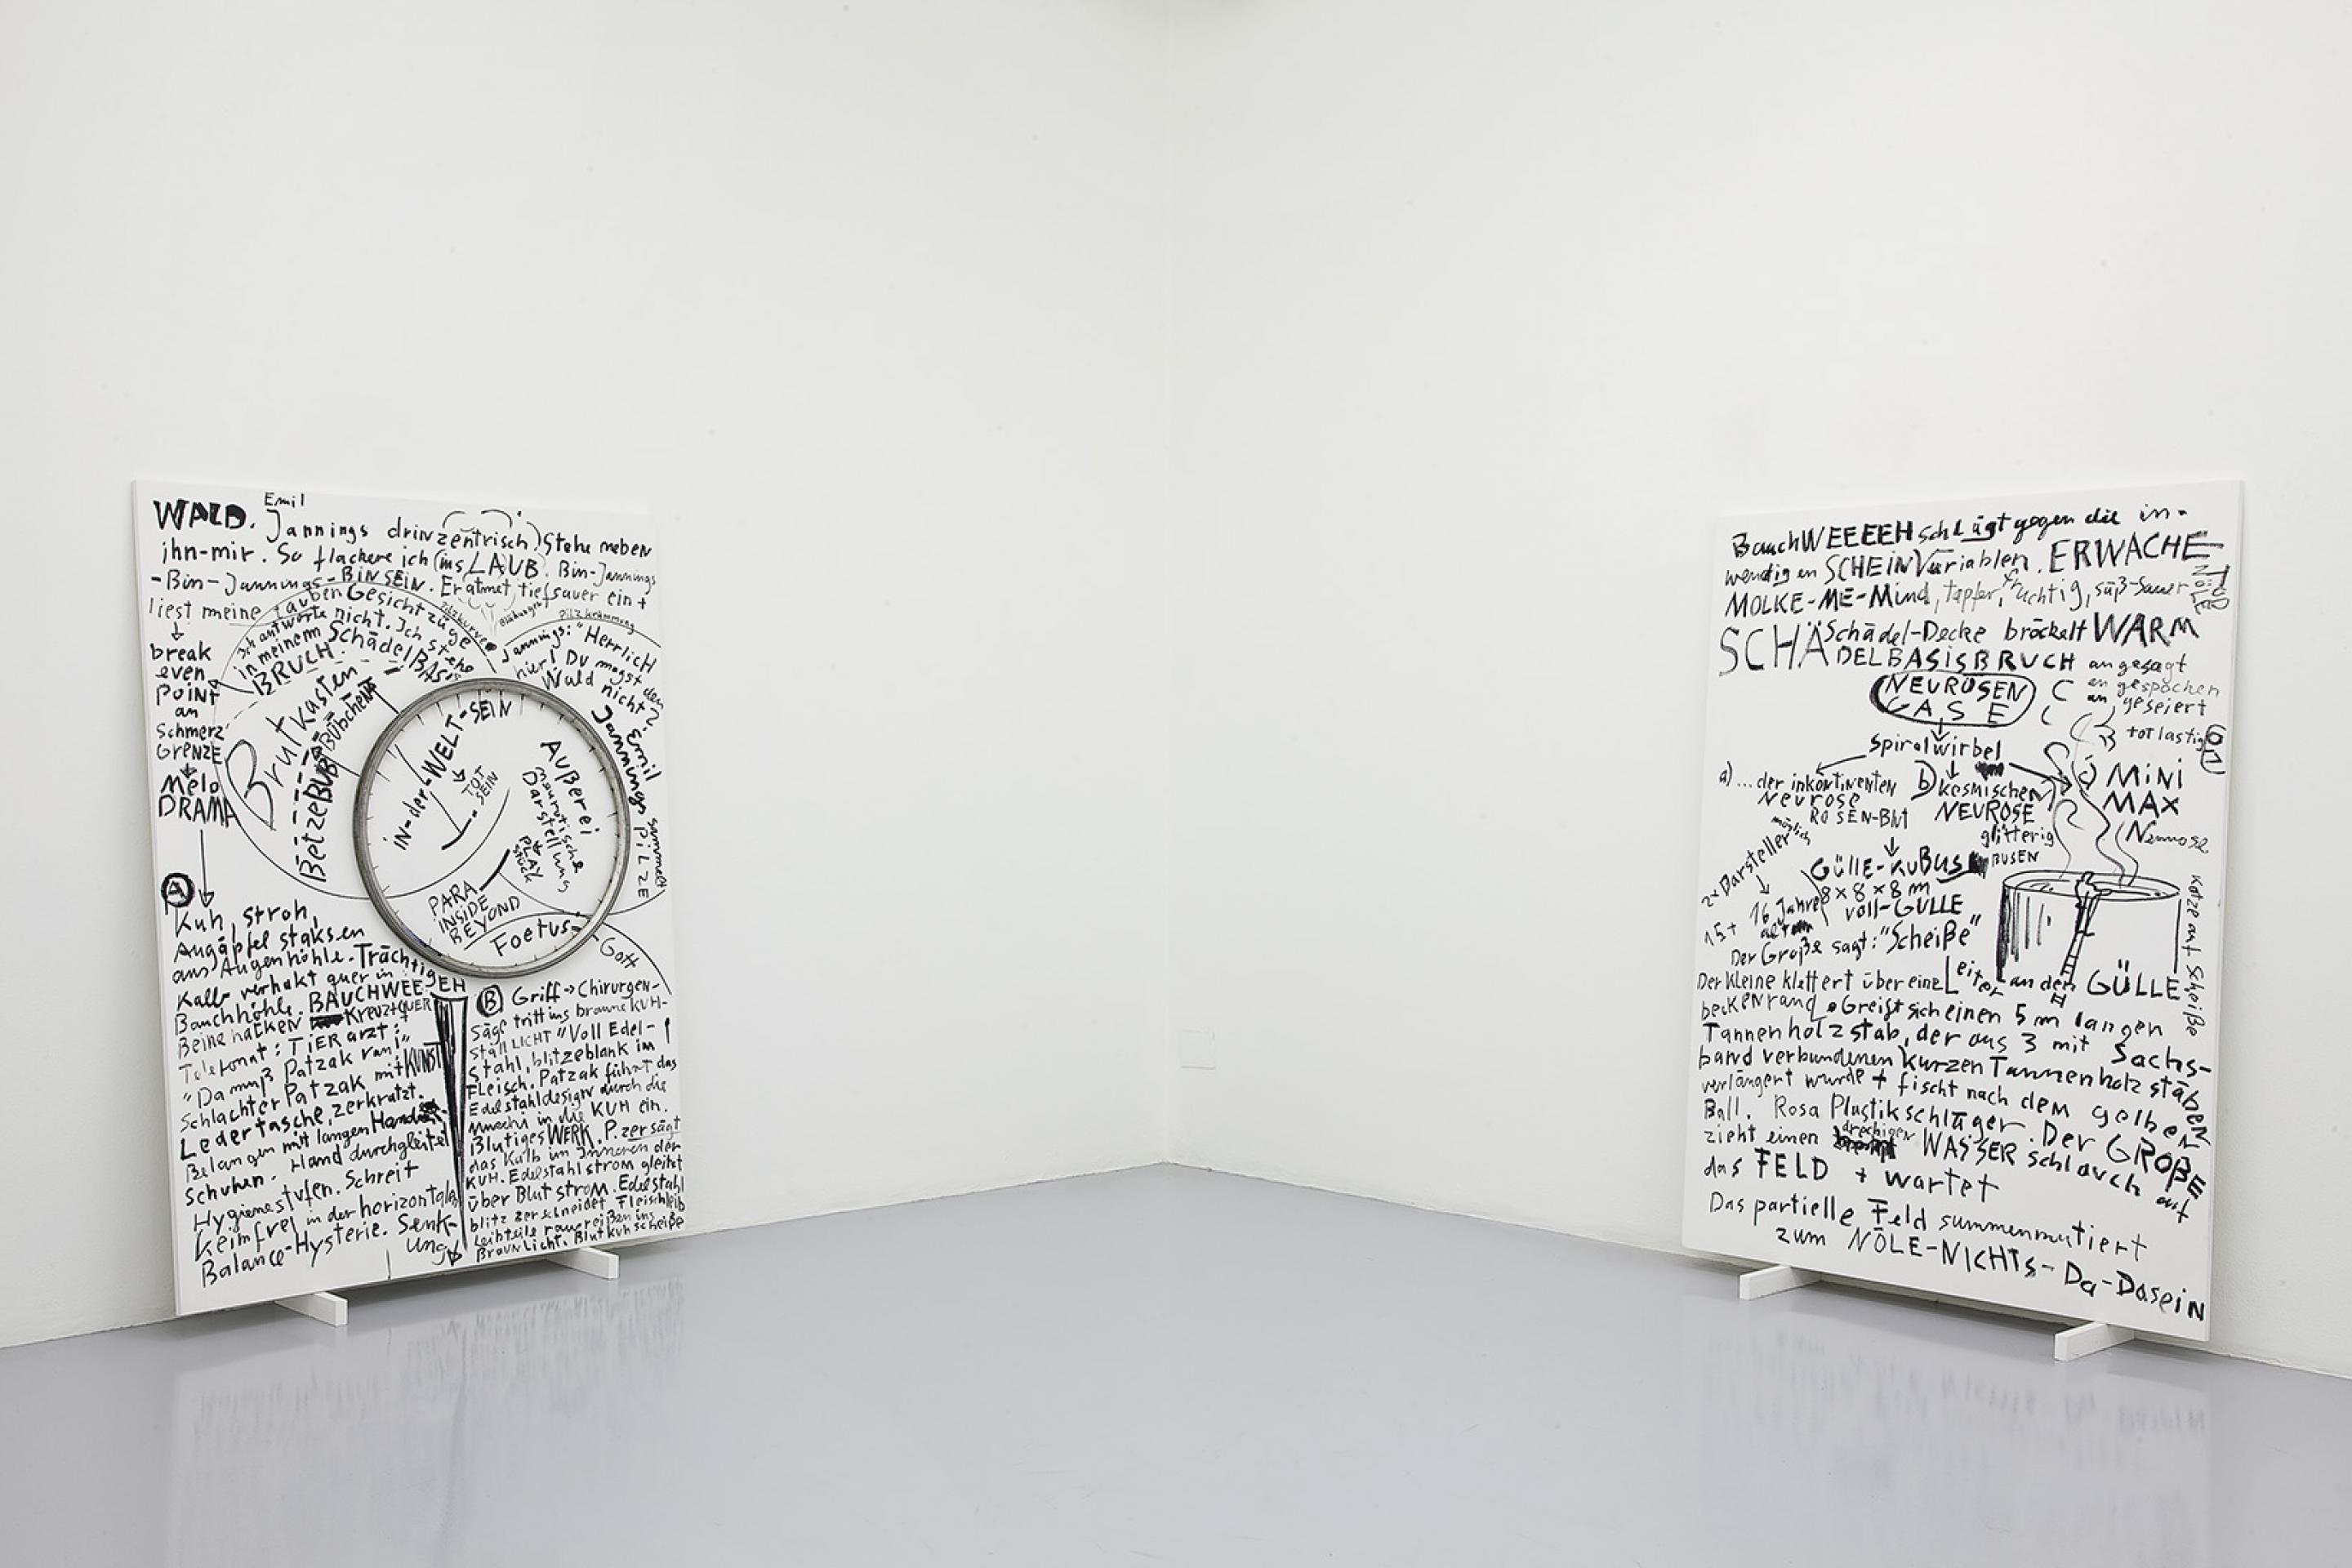 WALD. Emil
Jannings drinzentrisch. Stehe neben
ihn-mir. So flackere ich (ins LAUB. Bin-Jannings
-Bin-Jannings-BIN SEIN. Er atmet tief sauer ein +
liest meine tauben Gesichtzüge
Ich antworte nicht. Ich stehe
in meinem SchädelBASIS
BRUCH.
Pilzkurve
Blähungen
Pilzkrümmung
Jannings: "Herrlich
hier! Du magst den
Wald nicht?
Emil
Jannings sammelt PILZE
break
even
Point
an
Schmerz
GRENZE
Melo
DRAMA
Brutkasten
BeitzeBUB
BÜBCHEN
in-der-WELT-SEIN
TOT
SEIN
Außerei
Darstellung
PLAY
Stück
PARA
INSIDE
BEYOND
Foetus
Gott
A
Kuh, Stroh,
Augäpfel staksen
aus Augenhöhle. Trächtig
Kalb verhakt quer in
Bauchhöhle. BAUCHWEEEEH
Beine haken Kreuz+QUER
Telefonat: TIERarzt:
"Da muß Patzak ran!"
Schlachter Patzak mit KUNST
Ledertasche, zerkratzt.
Belangen mit langen Hand
schuhen. Hand durchgleitet
Hygienestufen. Schreit
Keimfrei in der horizontalen
Balance-Hysterie. Senk-
ung
B Griff → Chirurgen-
Säge tritt ins braune KUH-
Stall LICHT "Voll Edel-
Stahl, blitzeblank im !
Fleisch. Patzak führt das
Edelstahldesign durch die
Muschi in die KUH ein.
Blutiges WERK. P. zersägt
das Kalb im Inneren der
KUH. Edelstahlstrom gleitet
über Blutstrom. Edelstahl
blitz zerschneidet Fleischleib
Leibteile rausreißen ins
Braun Licht. Blutkuhscheiße
BauchWEEEEH schlägt gegen die in-
wendigen SCHEINVariablen. ERWACHE
MOLKE-ME-Mind, tapfer, fruchtig, süß-sauer
SCHÄ Schädel-Decke bröckelt WARM
DELBASISBRUCH angesagt
angespochen
angeseiert
NEUROSEN
GASE
totlastig
Spiralwirbel
a) ...der inkontinenten
Neurose
ROSEN-Blut
b) kosmischen
NEUROSE
glitterig
BUSEN
c) MiNi
MAX
2x Darsteller
möglich
15 + 16 Jahre
alt
GÜLLE-KUBUS
8 x 8 x 8 m
voll-GÜLLE
Kotze auf Scheiße
Der Große sagt: "Scheiße"
Der Kleine klettert über eine Leiter an den GÜLLE
beckenrand. Greift sich einen 5 m langen
Tannenholzstab, der aus 3 mit Sachs-
band verbundenen kurzen Tannenholzstäben
verlängert wurde + fischt nach dem gelben
Ball. Rosa Plastikschläger. Der GROßE
zieht einen dreckigen WASSERschlauch auf
das FELD + wartet
Das partielle Feld summenmutiert
zum NÖLE-NICHTS-Da-Dasein